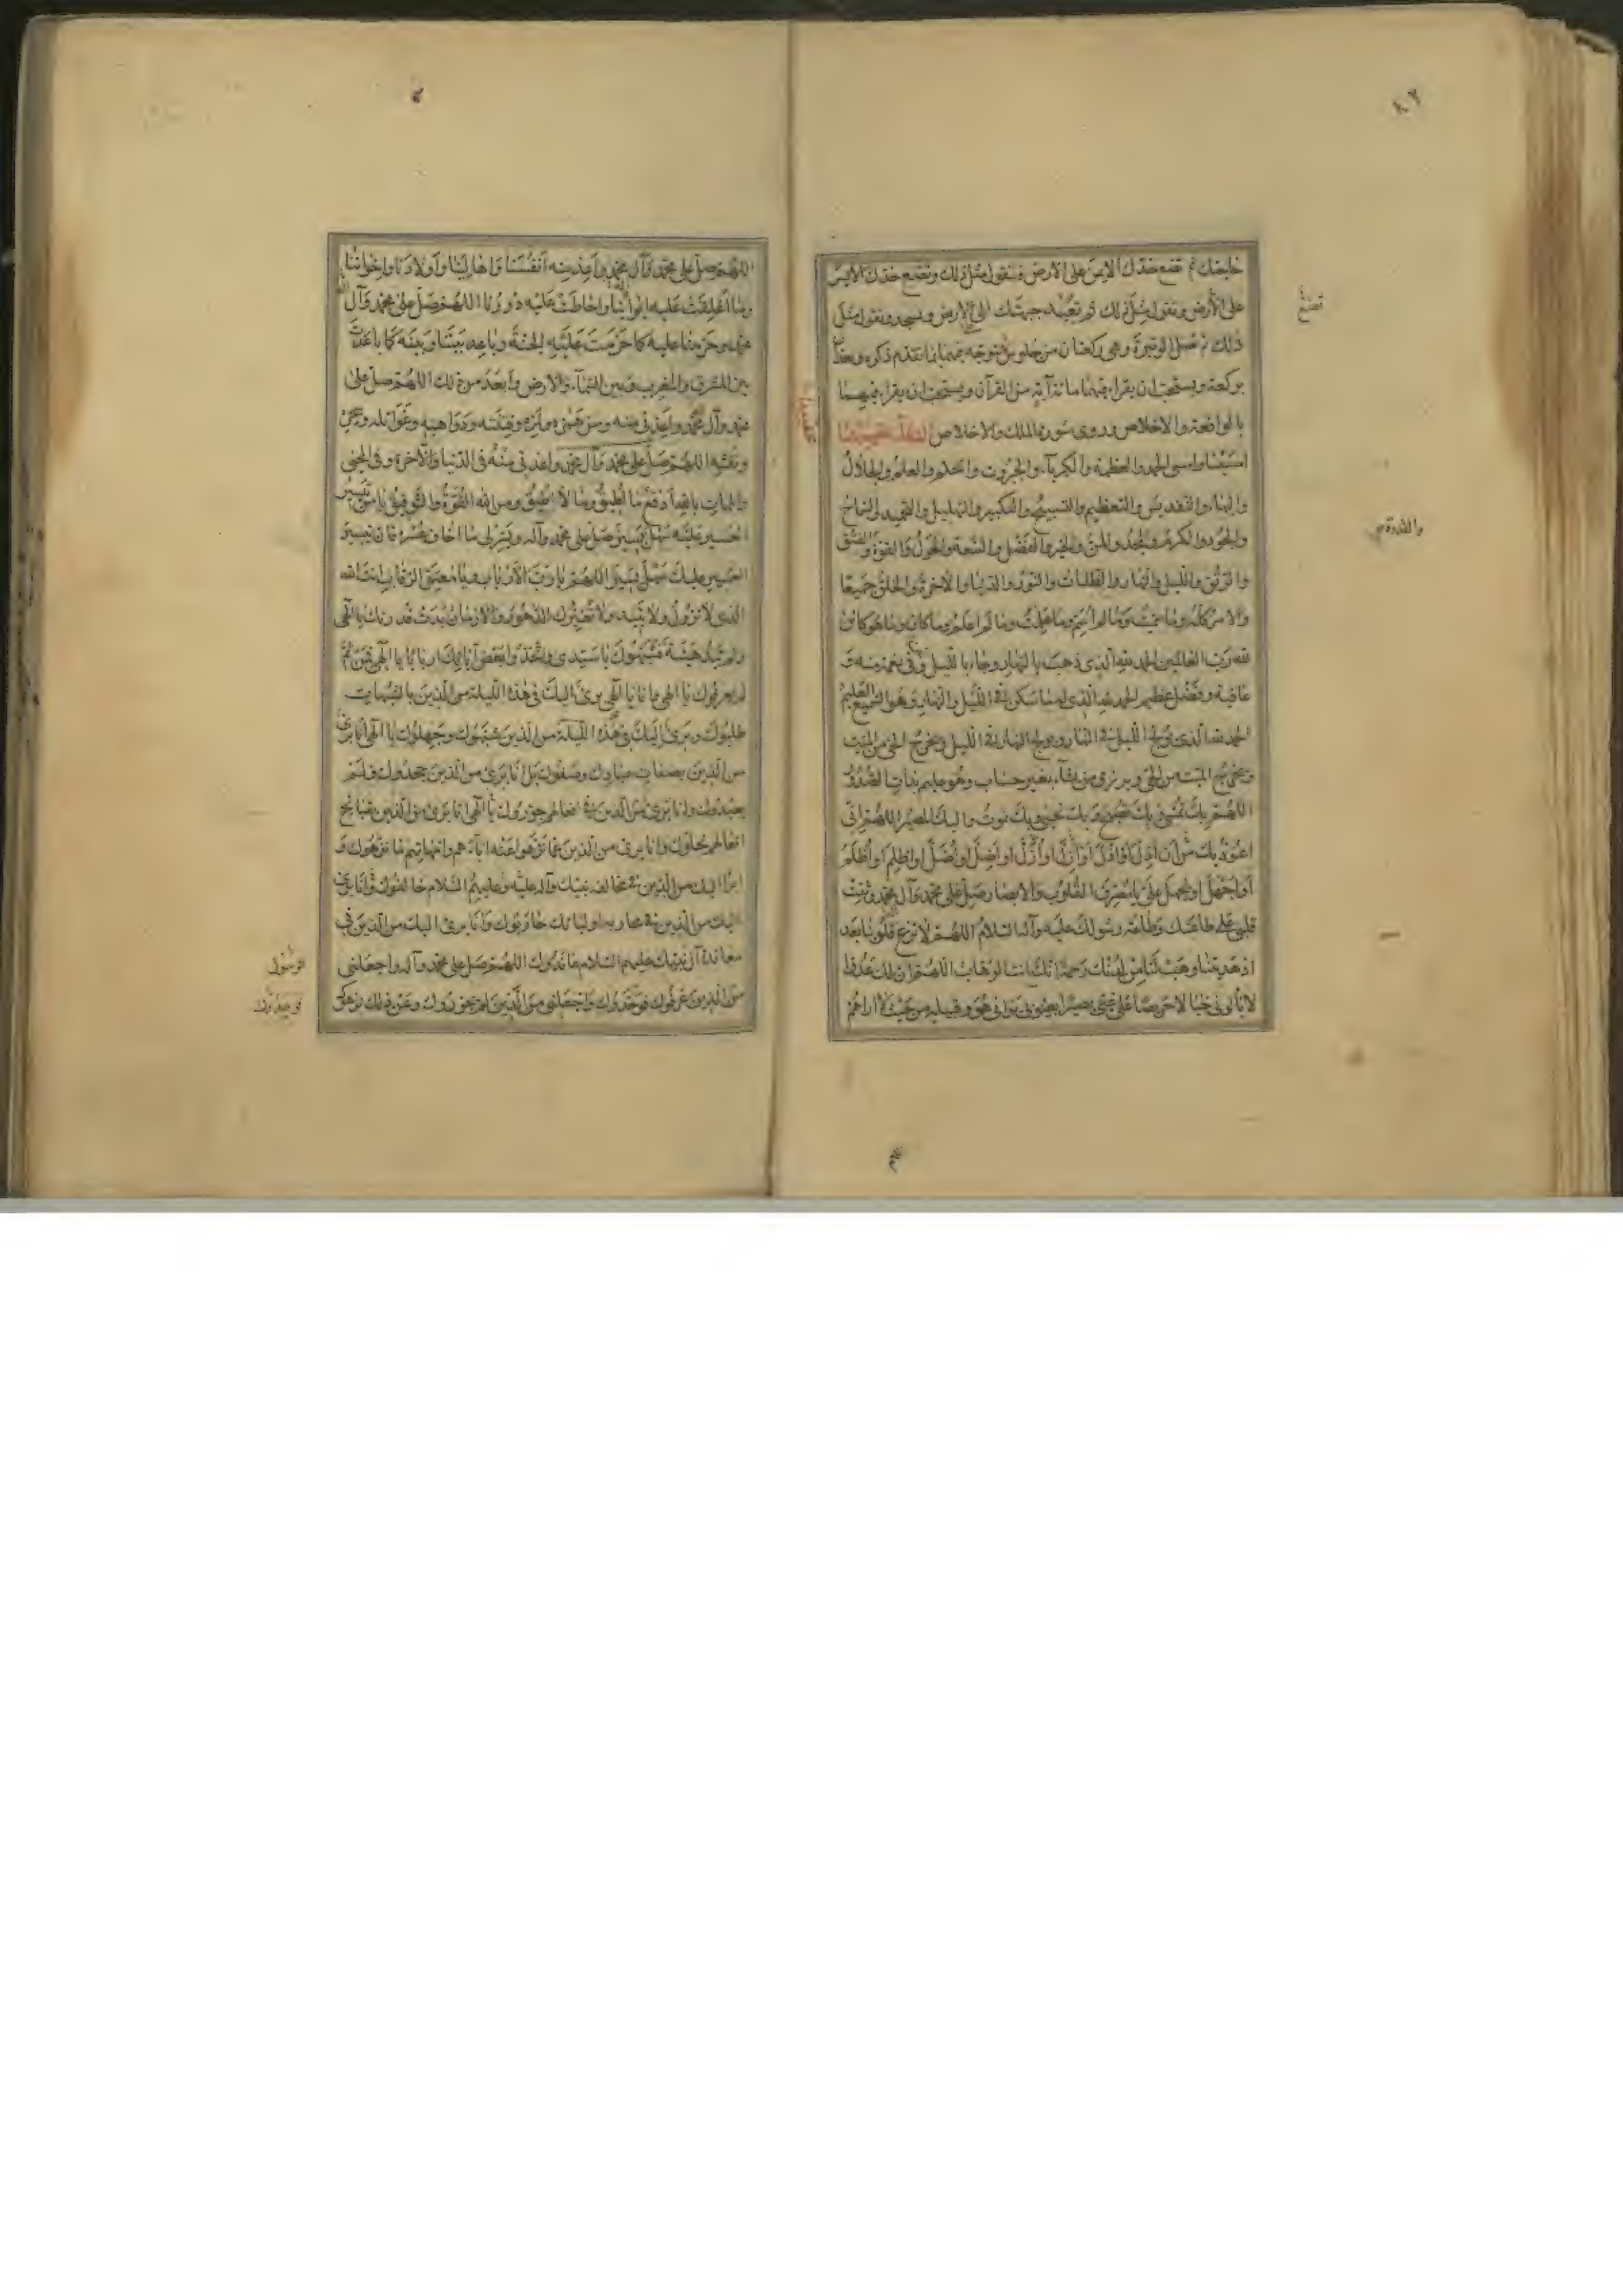 ٨٠٢
حاجتك ثم تضع خدك الايمن على الارض فتقول مثل ذلك وتضع خدك الايسر
تضع
على الارض وتقول مثل ذلك ثم تعيد جبهتك الى الارض وتسجد وتقول مثل
ذلك ثم تصلى الوتيرة وهى ركعتان من جلوس تتوجه فيهما بما تقدم ذكره وتعدان
بركعة ويستحب ان يقراء فيهما مائة آية من القرآن ويستحب ان يقراء فيهما
بالواقعة والاخلاص وروى سورة الملك والاخلاص
امسينا وامسى الحمد والعظمة والكبرياء والجبروت والحلم والعلم والجلال
والبهاء والتقديس والتعظيم والتسبيح والتكبير والتهليل والتحميد والسماح
والقدرة
والجود والكرم والمجد والمن والخير والفضل والسعة والحول والقوة والفتق
والرتق والليل والنهار والظلمات والنور والدنيا والاخرة والخلق جميعا
والامر كله وما سميت وما لم اسم وما علمت وما لم اعلم وما كان وما هو كائن
لله رب العالمين الحمد لله الذى ذهب بالنهار وجاء بالليل ونحن فى نعمة منه و
عافية وفضل عظيم الحمد لله الذى له ما سكن فى الليل والنهار وهو السميع العليم
الحمد لله الذى يولج الليل فى النهار ويولج النهار فى الليل ويخرج الحى من الميت
ويخرج الميت من الحى ويرزق من يشاء بغير حساب وهو عليم بذات الصدور
اللهم بك نمسى وبك نصبح وبك نحيى وبك نموت واليك المصير اللهم انى
اعوذ بك من ان اذل او اذل او ازل او ازل او اضل او اضل او اظلم او اظلم
او اجهل او يجهل على يا مصرف القلوب والابصار صل على محمد وآل محمد وثبت
قلبى على طاعتك وطاعة رسولك عليه وآله السلام اللهم لا تزغ قلوبنا بعد
اذ هديتنا وهب لنا من لدنك رحمة انك انت الوهاب اللهم ان لك عدوا
لا يألونى خبالا حريصا على غيى بصيرا بعيوبى يرانى هو وقبيله من حيث لا اراهم
اللهم صل على محمد وآل محمد واعذ منه انفسنا واهالينا واولادنا واخواننا
وما اغلقت عليه ابوابنا واحاطت عليه دورنا اللهم صل على محمد وآل
محمد وحرمنا عليه كما حرمت عليه الجنة وباعد بيننا وبينه كما باعدت
بين المشرق والمغرب وبين السماء والارض وابعد من ذلك اللهم صل على
محمد وآل محمد واعذنى منه ومن همزه ولمزه وفتنته ودواهيه وغوائله وسحره
ونفثه اللهم صل على محمد وآل محمد واعذنى منه فى الدنيا والاخرة وفى المحيى
والممات بالله ادفع ما اطيق وما لا اطيق ومن الله القوة والتوفيق يا من تيسير
العسير عليه سهل يسير صل على محمد وآله ويسر لى ما اخاف عسره فان تيسير
العسير عليك سهل يسير اللهم يا رب الارباب ويا معتق الرقاب انت الله
الذى لا تزول ولا تبيد ولا تغيرك الدهور والازمان بدت قدرتك يا الهى
ولم تبد هيئة فشبهوك يا سيدى واتخذوا بعض آياتك اربابا يا الهى فمن ثم
لم يعرفوك يا الهى وانا يا الهى برئ اليك فى هذه الليلة من الذين بالشبهات
طلبوك وبرئ اليك فى هذه الليلة من الذين شبهوك وجهلوك يا الهى انا برئ
من الذين بصفات عبادك وصفوك بل انا برئ من الذين جحدوك فلم
يعبدوك وانا برئ من الذين فى افعالهم جوروك يا الهى انا برئ من الذين بقبائح
افعالهم نحلوك وانا برئ من الذين عما نزهوا عنه اباءهم وامهاتهم ما نزهوك و
ابرأ اليك من الذين فى مخالفة نبيك وآله عليه وعليهم السلام خالفوك وانا برئ
اليك من الذين فى محاربة اوليائك حاربوك وانا برئ اليك من الذين فى
معاندة آل نبيك عليهم السلام عاندوك اللهم صل على محمد وآله واجعلنى
من الذين عرفوك فوحدوك واجعلنى من الذين لم يجوروك وعن ذلك نزهوك